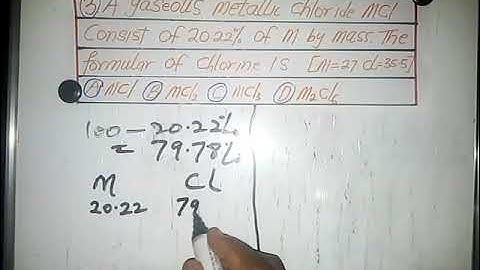 ③ A gaseous metallic chloride MCl
Consist of 20.22% of M by mass. The
formular of Chlorine is [M=27 Cl=35.5]
Ⓐ MCl Ⓑ MCl₂ Ⓒ MCl₃ Ⓓ M₂Cl₆
100 - 20.22%
= 79.78%
M Cl
20.22 79